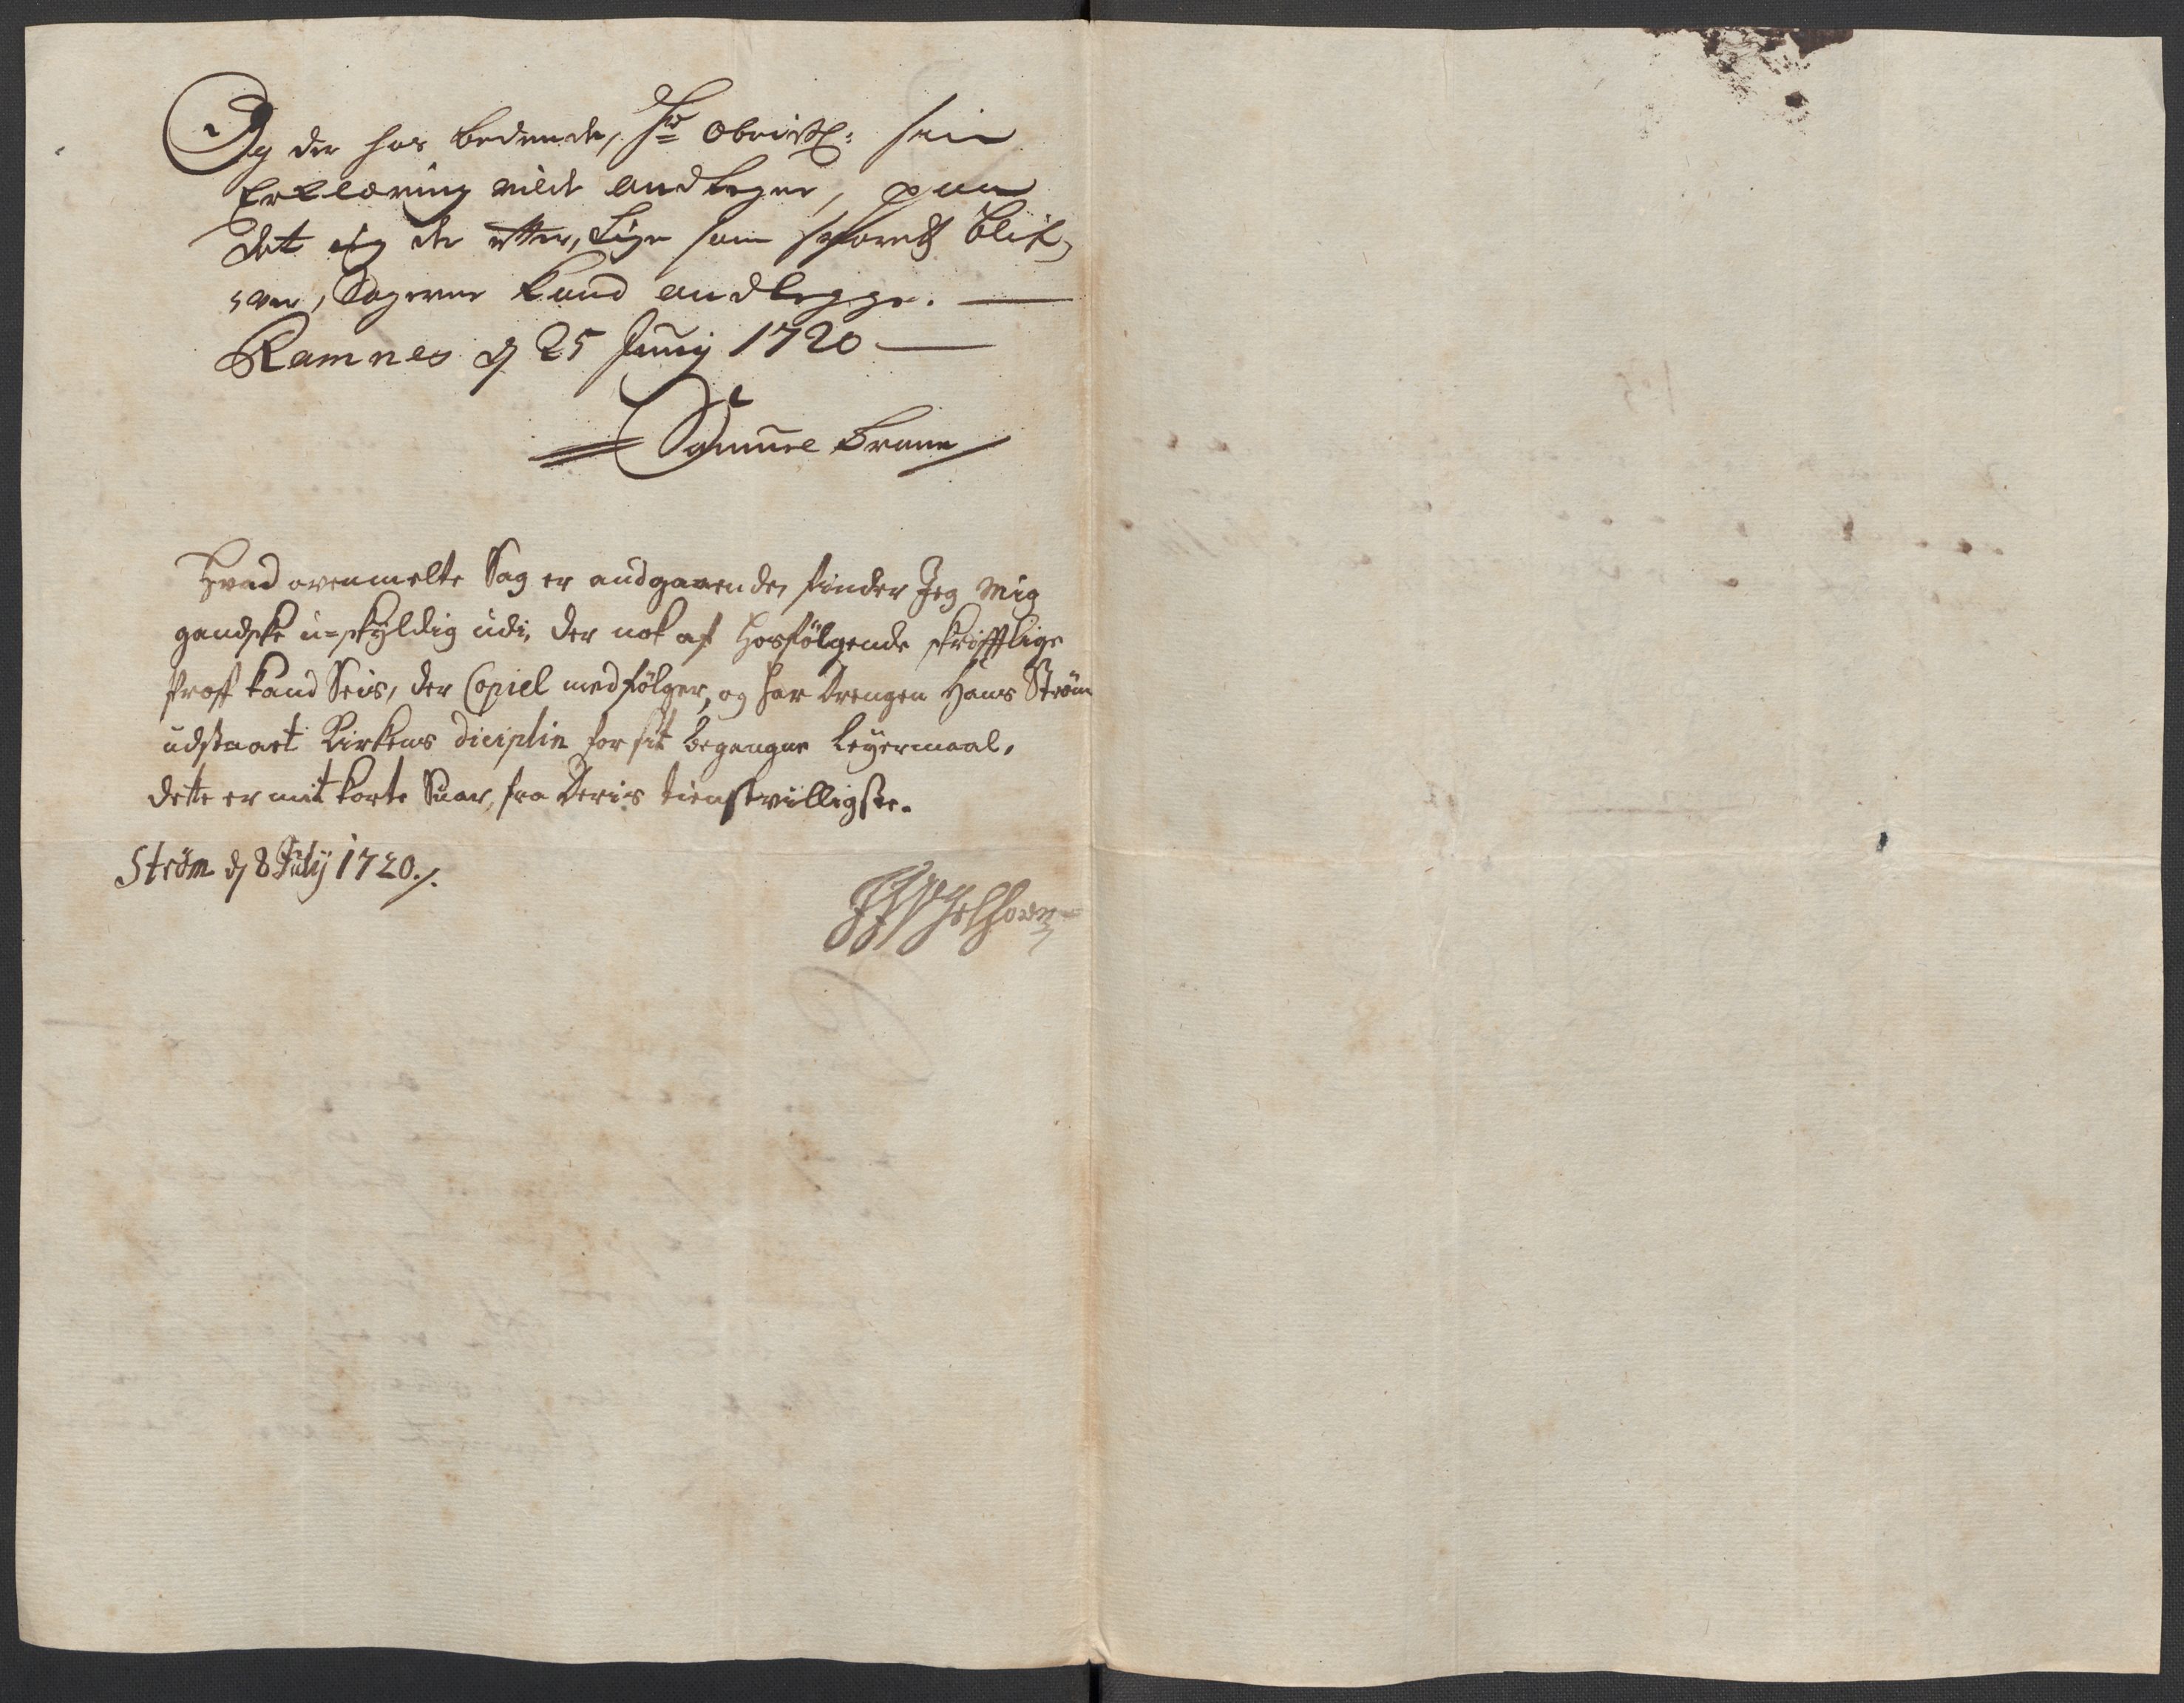 Og der hos bedende, Hr Obristl: sin
Erklæring vilde andtegne, paa
det ieg der etter, Lige som
sver, Sagerne kand andlegge.
Ramnes d 25 Junij 1720
Samuel Brown
Hvad ovenmelte Sag er andgaaende, finder Jeg mig
gandske u-skyldig udi, der nok af hosfölgende skrifftlige
Prof kand Seis, der Copiel medfölger, og har drengen Hans Ström
udstaaet Kirkens diciplin for sit begangne Leyermaal.
dette er mit korte Suar, fra Deris tienstvilligste.
Ström d 8 July 1720./.